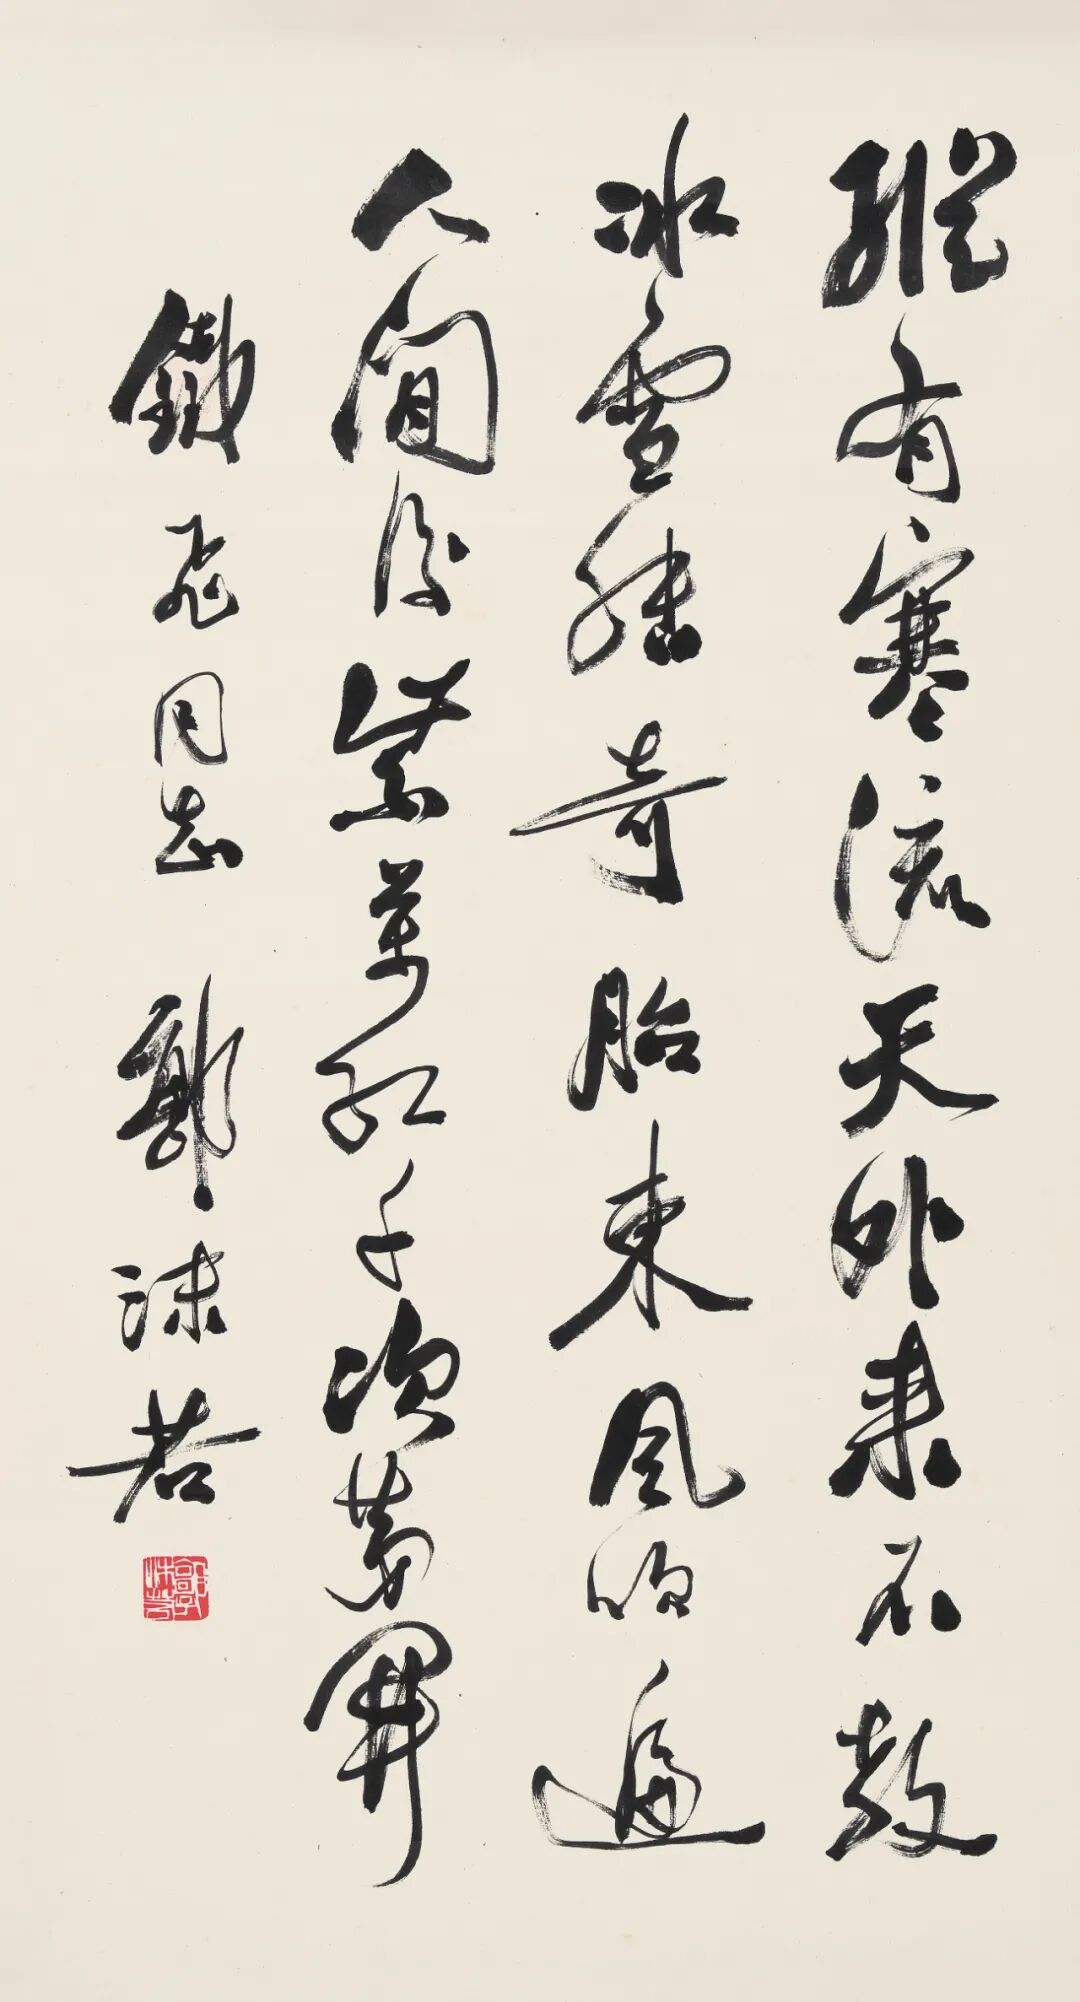 縱有寒流天外来不教
冰雪結奇胎東風吹遍
人間後紫萬紅千次第開
鐵飛同志 郭沫若
郭沫若